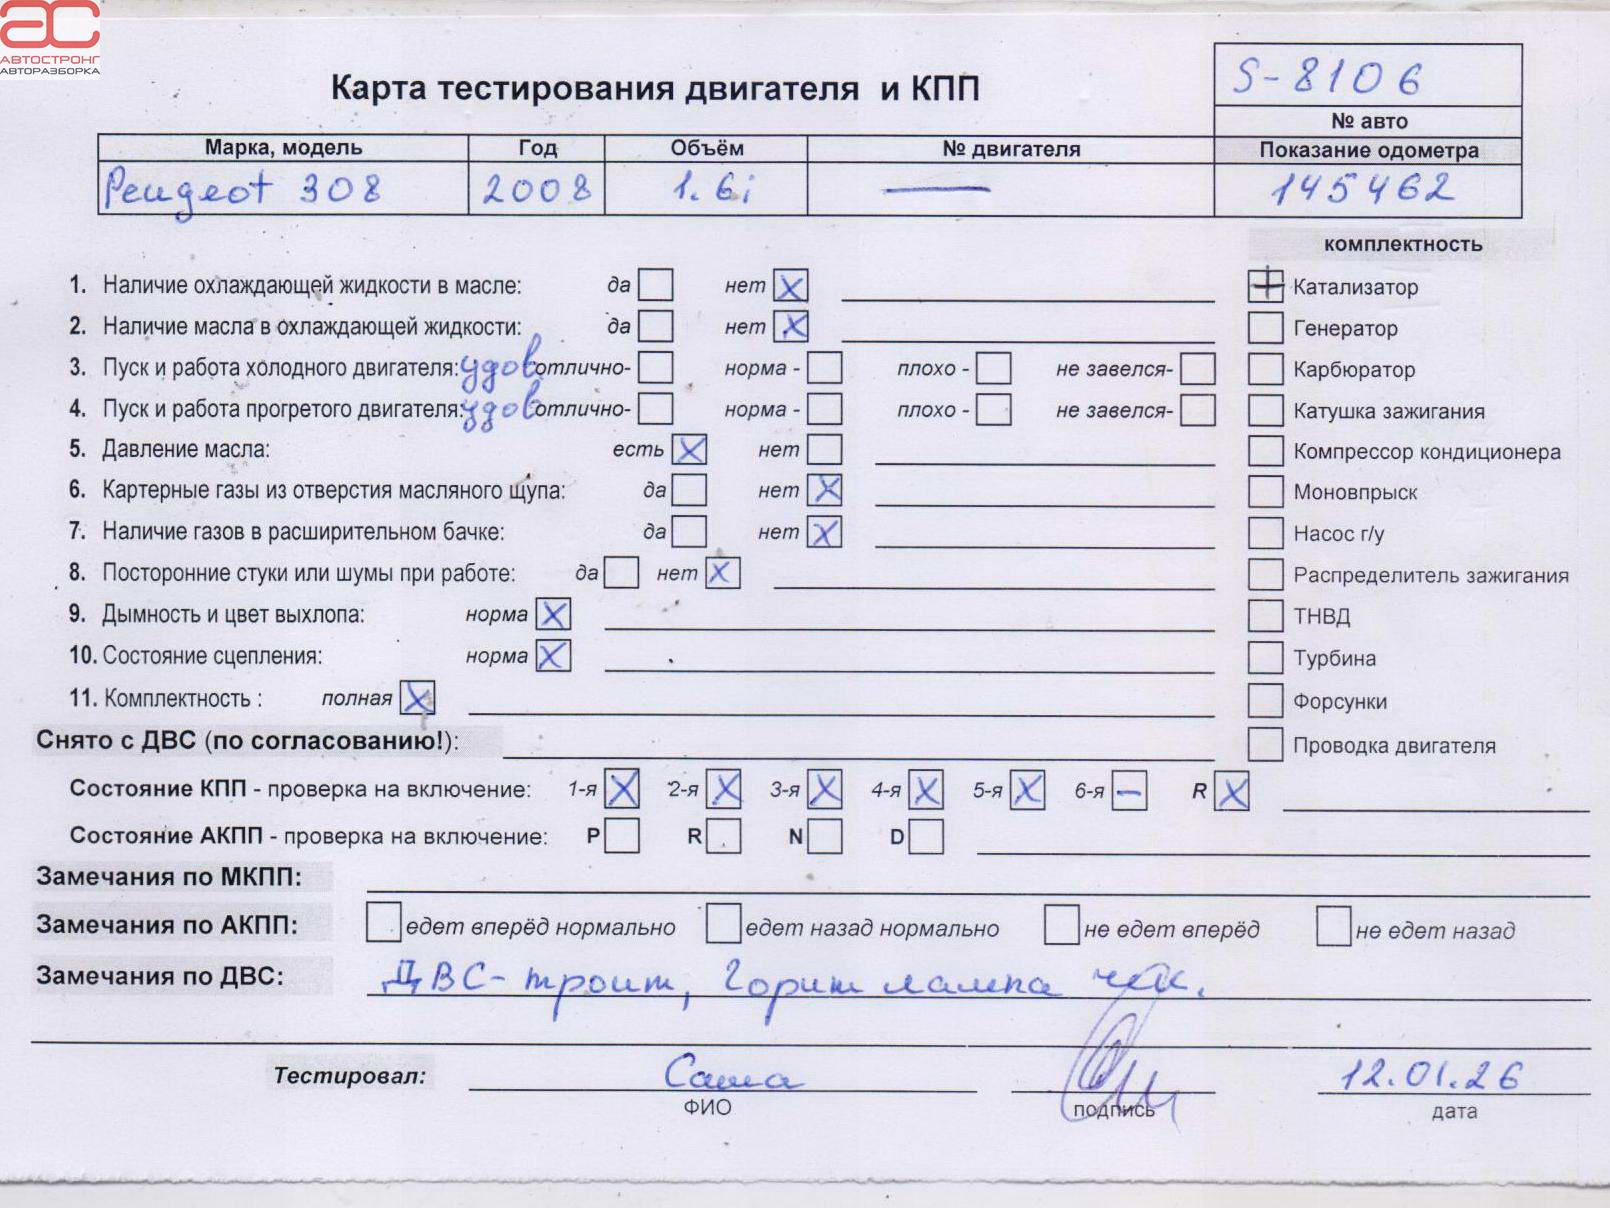 АС
АВТОСТРОНГ
АВТОРАЗБОРКА
S-8106
Карта тестирования двигателя и КПП
№ авто
Марка, модель Год Объём № двигателя Показание одометра
Peugeot 308 2008 1.6i — 145462
комплектность
1. Наличие охлаждающей жидкости в масле: да нет X
Катализатор
2. Наличие масла в охлаждающей жидкости: да нет X
Генератор
3. Пуск и работа холодного двигателя: удов отлично- норма - плохо - не завелся-
Карбюратор
4. Пуск и работа прогретого двигателя: удов отлично- норма - плохо - не завелся-
Катушка зажигания
5. Давление масла: есть X нет
Компрессор кондиционера
6. Картерные газы из отверстия масляного щупа: да нет X
Моновпрыск
7. Наличие газов в расширительном бачке: да нет X
Насос г/у
8. Посторонние стуки или шумы при работе: да нет X
Распределитель зажигания
9. Дымность и цвет выхлопа: норма X
ТНВД
10. Состояние сцепления: норма X
Турбина
11. Комплектность : полная X
Форсунки
Снято с ДВС (по согласованию!):
Проводка двигателя
Состояние КПП - проверка на включение: 1-я X 2-я X 3-я X 4-я X 5-я X 6-я – R X
Состояние АКПП - проверка на включение: P R N D
Замечания по МКПП:
Замечания по АКПП: едет вперёд нормально едет назад нормально не едет вперёд не едет назад
Замечания по ДВС: ДВС- троит, Горит лампа чек.
Тестировал: Саша 12.01.26
ФИО подпись дата